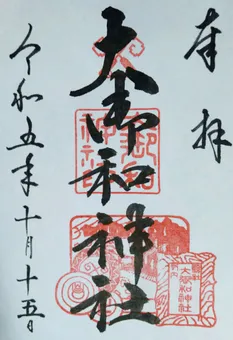 奉拝
大御和神社
御和
神社
大御和神社
令和五年十月十五日